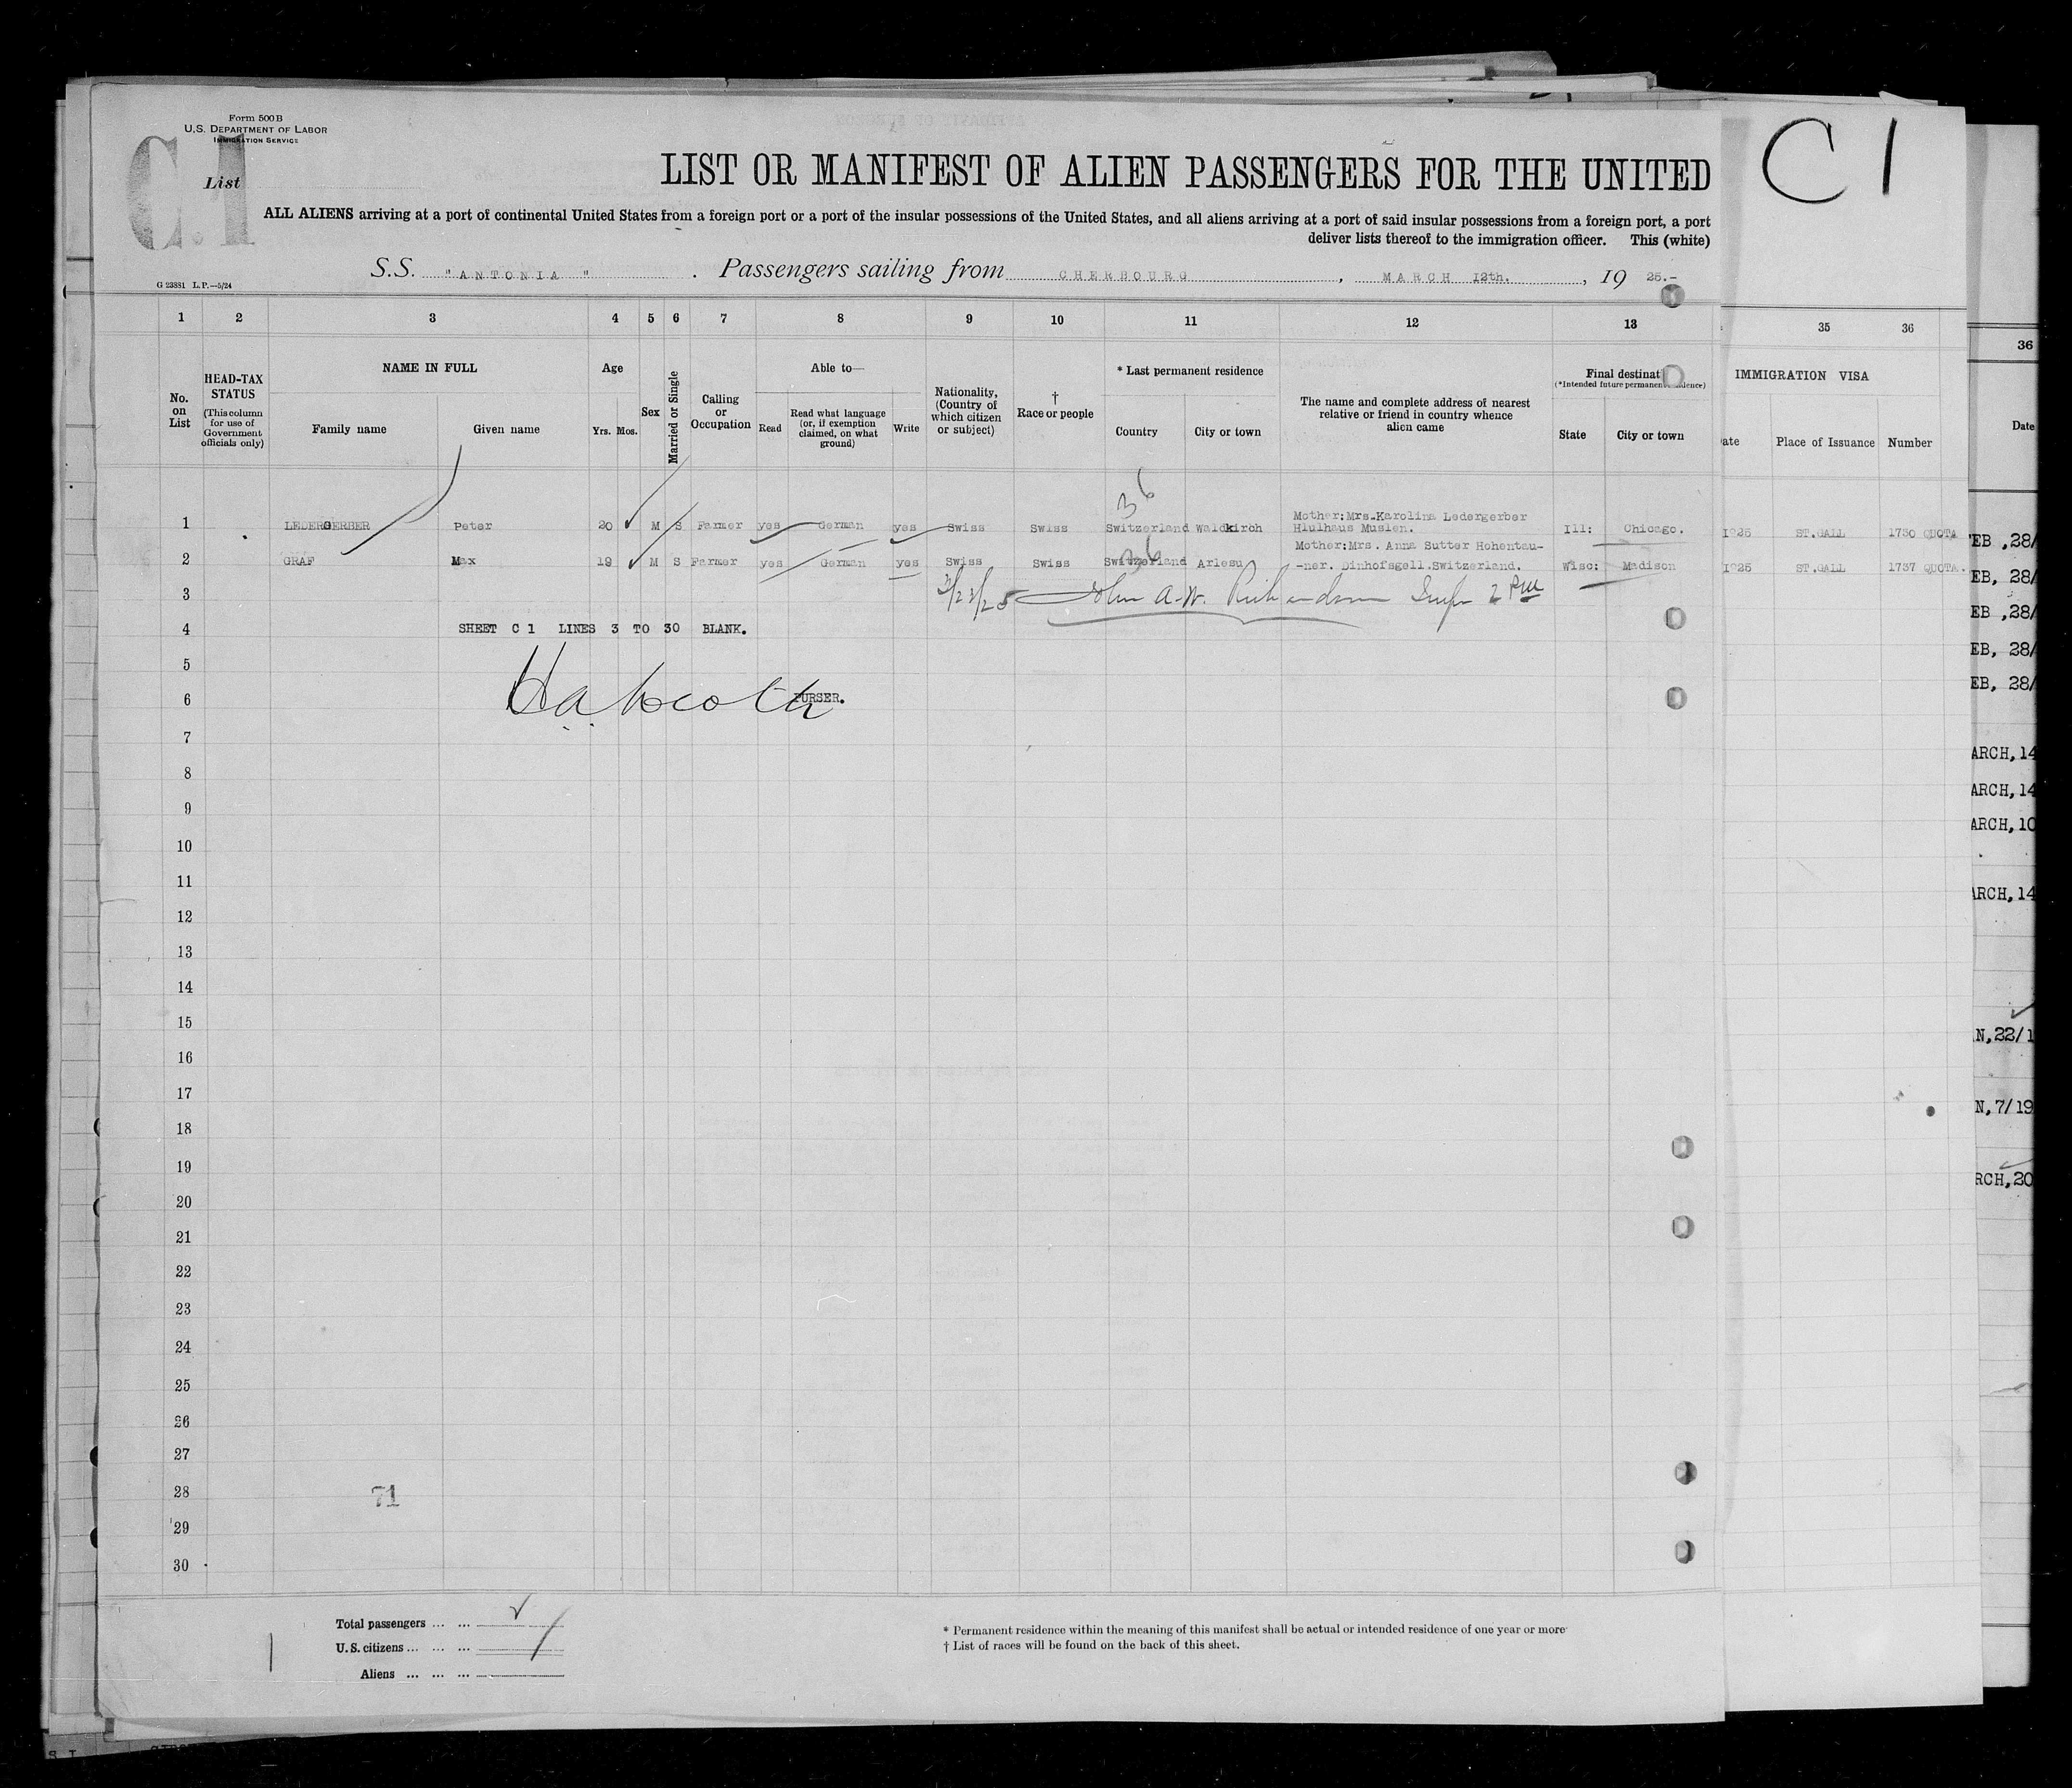 Form 500 B
U.S. DEPARTMENT OF LABOR
IMMIGRATION SERVICE
C.1
List
C 1
LIST OR MANIFEST OF ALIEN PASSENGERS FOR THE UNITED
ALL ALIENS arriving at a port of continental United States from a foreign port or a port of the insular possessions of the United States, and all aliens arriving at a port of said insular possessions from a foreign port, a port
deliver lists thereof to the immigration officer. This (white)
S.S. "ANTONIA". Passengers sailing from CHERBOURG, MARCH 12th., 19 25.-
G 23881 L.P.—5/24
1 2 3 4 5 6 7 8 9 10 11 12 13 35 36
36
No. on List
HEAD-TAX STATUS (This column for use of Government officials only)
NAME IN FULL
Family name Given name
Age
Yrs. Mos.
Sex
Married or Single
Calling or Occupation
Able to—
Read
Read what language (or, if exemption claimed, on what ground)
Write
Nationality, (Country of which citizen or subject)
† Race or people
* Last permanent residence
Country City or town
The name and complete address of nearest relative or friend in country whence alien came
Final destinat
(*Intended future permanent dence)
State City or town
IMMIGRATION VISA
ate Place of Issuance Number
Date
36
Mother:Mrs.Karolina Ledergerber
1 LEDERGERBER Peter 20 M S Farmer yes German yes Swiss Swiss Switzerland Waldkirch Hlulhaus Muslen. Ill: Chicago. 1925 ST.GALL 1730 QUOTA
36
Mother:Mrs. Anna Sutter Hohentau-
2 GRAF Max 19 M S Farmer yes German yes Swiss Swiss Switzerland Arlesu -ner. Dinhofsgell.Switzerland. Wisc: Madison 1925 ST.GALL 1737 QUOTA.
3 John A.W. Richardson
4 SHEET C 1 LINES 3 TO 30 BLANK.
5
6 PURSER.
7
8
9
10
11
12
13
14
15
16
17
18
19
20
21
22
23
24
25
26
27
28 71
29
30
EB ,28/
EB, 28/
EB ,28/
EB, 28/
EB, 28/
ARCH,14
ARCH,14
ARCH,10
ARCH,14
N,22/1
N,7/19
RCH,20
Total passengers ... ...
U.S. citizens ... ... ...
Aliens ... ... ...
* Permanent residence within the meaning of this manifest shall be actual or intended residence of one year or more
† List of races will be found on the back of this sheet.